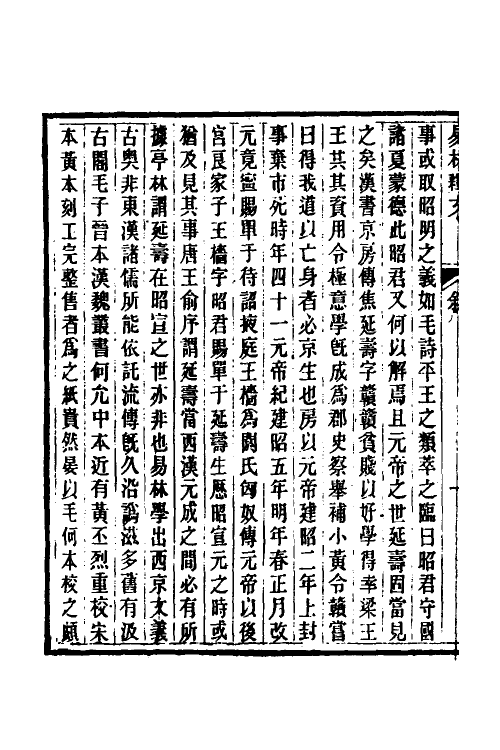 易林釋文
敘
一
事或取昭明之義如毛詩平王之類萃之臨曰昭君守國
諸夏蒙德此昭君又何以解焉且元帝之世延壽固當見
之矣漢書京房傳焦延壽字贛贛貧賤以好學得幸梁王
王共其資用令極意學旣成爲郡史察舉補小黃令贛嘗
曰得我道以亡身者必京生也房以元帝建昭二年上封
事棄市死時年四十一元帝紀建昭五年明年春正月改
元竟寧賜單于待詔掖庭王檣爲閼氏匈奴傳元帝以後
宮良家子王檣字昭君賜單于延壽生歷昭宣元之時或
猶及見其事唐王俞序謂延壽當西漢元成之間必有所
據亭林謂延壽在昭宣之世亦非也易林學出西京文義
古奧非東漢諸儒所能依託流傳旣久沿譌滋多舊有汲
古閣毛子晉本漢魏叢書何允中本近有黃丕烈重校宋
本黃本刻工完整售者爲之紙貴然晏以毛何本校之頗